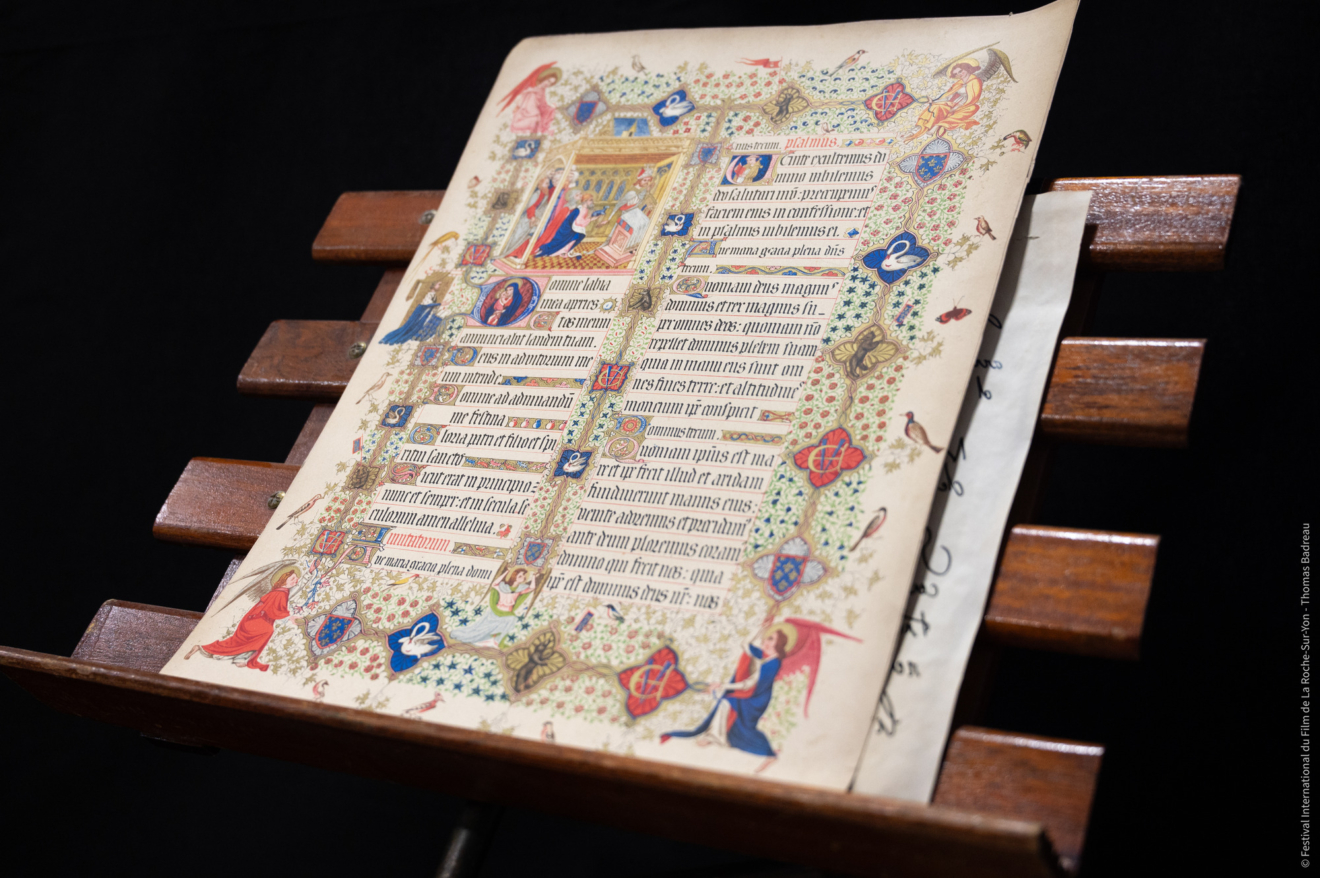 Domine labia
mea aperies
et os meum
annunciabit laudem tuam.
Deus in adiutorium me
um intende.
Domine ad adiuuandū
me festina
Gloria patri et filio et spi
ritui sancto
Sicut erat in principio:
nunc et semper: et in secula se
culorum amen alleluia.
Inuitatorium.
Ave maria gracia plena domi
nus tecum. psalmus.
exultemus do
mino iubilemus
deo salutari
faciem eius in confessione: et
in psalmis iubilemus ei.
gracia plena dūs
tecum.
Quoniam deus magnus
dominus et rex magnus su
per omnes deos: quoniam nō
repellet dominus plebem suam
quia in manu eius sunt om
nes fines terre: et altitudines
montium ip̄e conspicit
Dominus tecum.
Quoniam ipsius est ma
re et ip̄e fecit illud et aridam
fundauerunt manus eius:
venite adoremus et
ante deum ploremus coram
domino qui fecit nos: quia
ip̄e est dominus deus nr̄: nos
© Festival International du Film de La Roche-Sur-Yon - Thomas Badreau